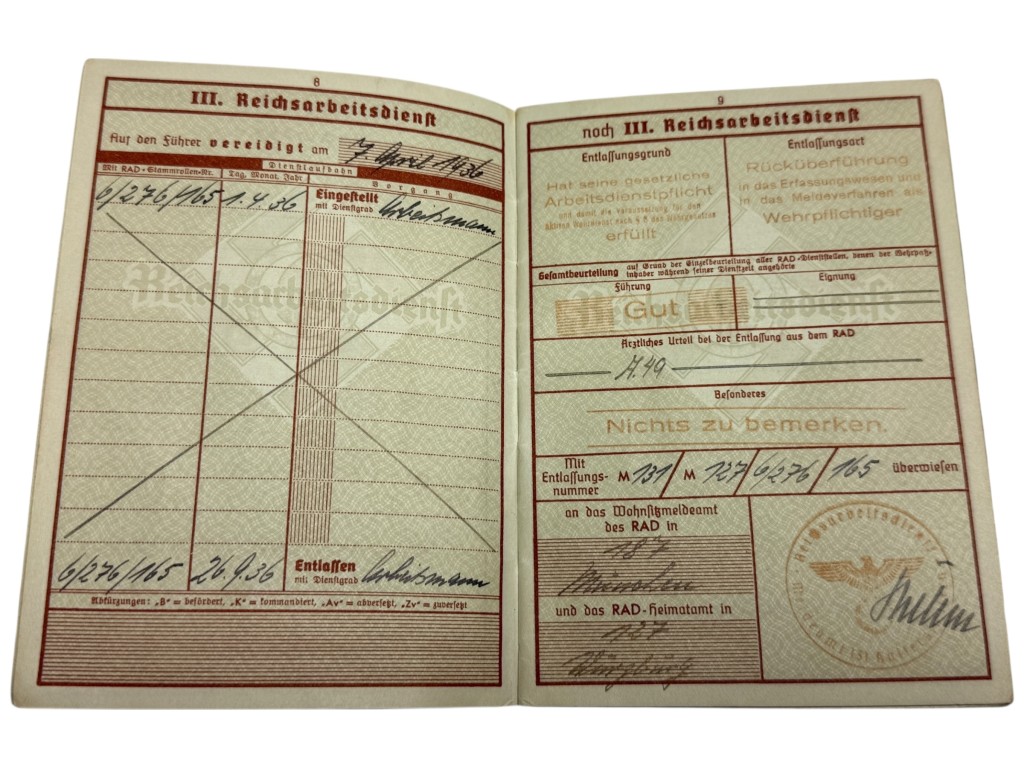 8
III. Reichsarbeitsdienst
Auf den Führer vereidigt am 7. April 1936
Dienstlaufbahn
Mit RAD-Stammrollen-Nr. Tag, Monat, Jahr Vorgang
6/276/165 1.4.36 Eingestellt
mit Dienstgrad Arbeitsmann
6/276/165 26.9.36 Entlassen
mit Dienstgrad Arbeitsmann
Abkürzungen: „B“ = befördert, „K“ = kommandiert, „Av“ = abversetzt, „Zv“ = zuversetzt
9
noch III. Reichsarbeitsdienst
Entlassungsgrund
Hat seine gesetzliche
Arbeitsdienstpflicht
und damit die Voraussetzung für den
aktiven Wehrdienst nach § 8 des Wehrgesetzes
erfüllt
Entlassungsart
Rücküberführung
in das Erfassungswesen und
in das Meldeverfahren als
Wehrpflichtiger
Gesamtbeurteilung auf Grund der Einzelbeurteilung aller RAD-Dienststellen, denen der Wehrpaß-
inhaber während seiner Dienstzeit angehörte
Führung
Gut
Eignung
Ärztliches Urteil bei der Entlassung aus dem RAD
A.49
Besonderes
Nichts zu bemerken.
Mit
Entlassungs-
nummer M 131 / M 127 / 6/276 / 165 überwiesen
an das Wohnsitzmeldeamt
des RAD in
187
München
und das RAD-Heimatamt in
127
Würzburg
Reichsarbeitsdienst